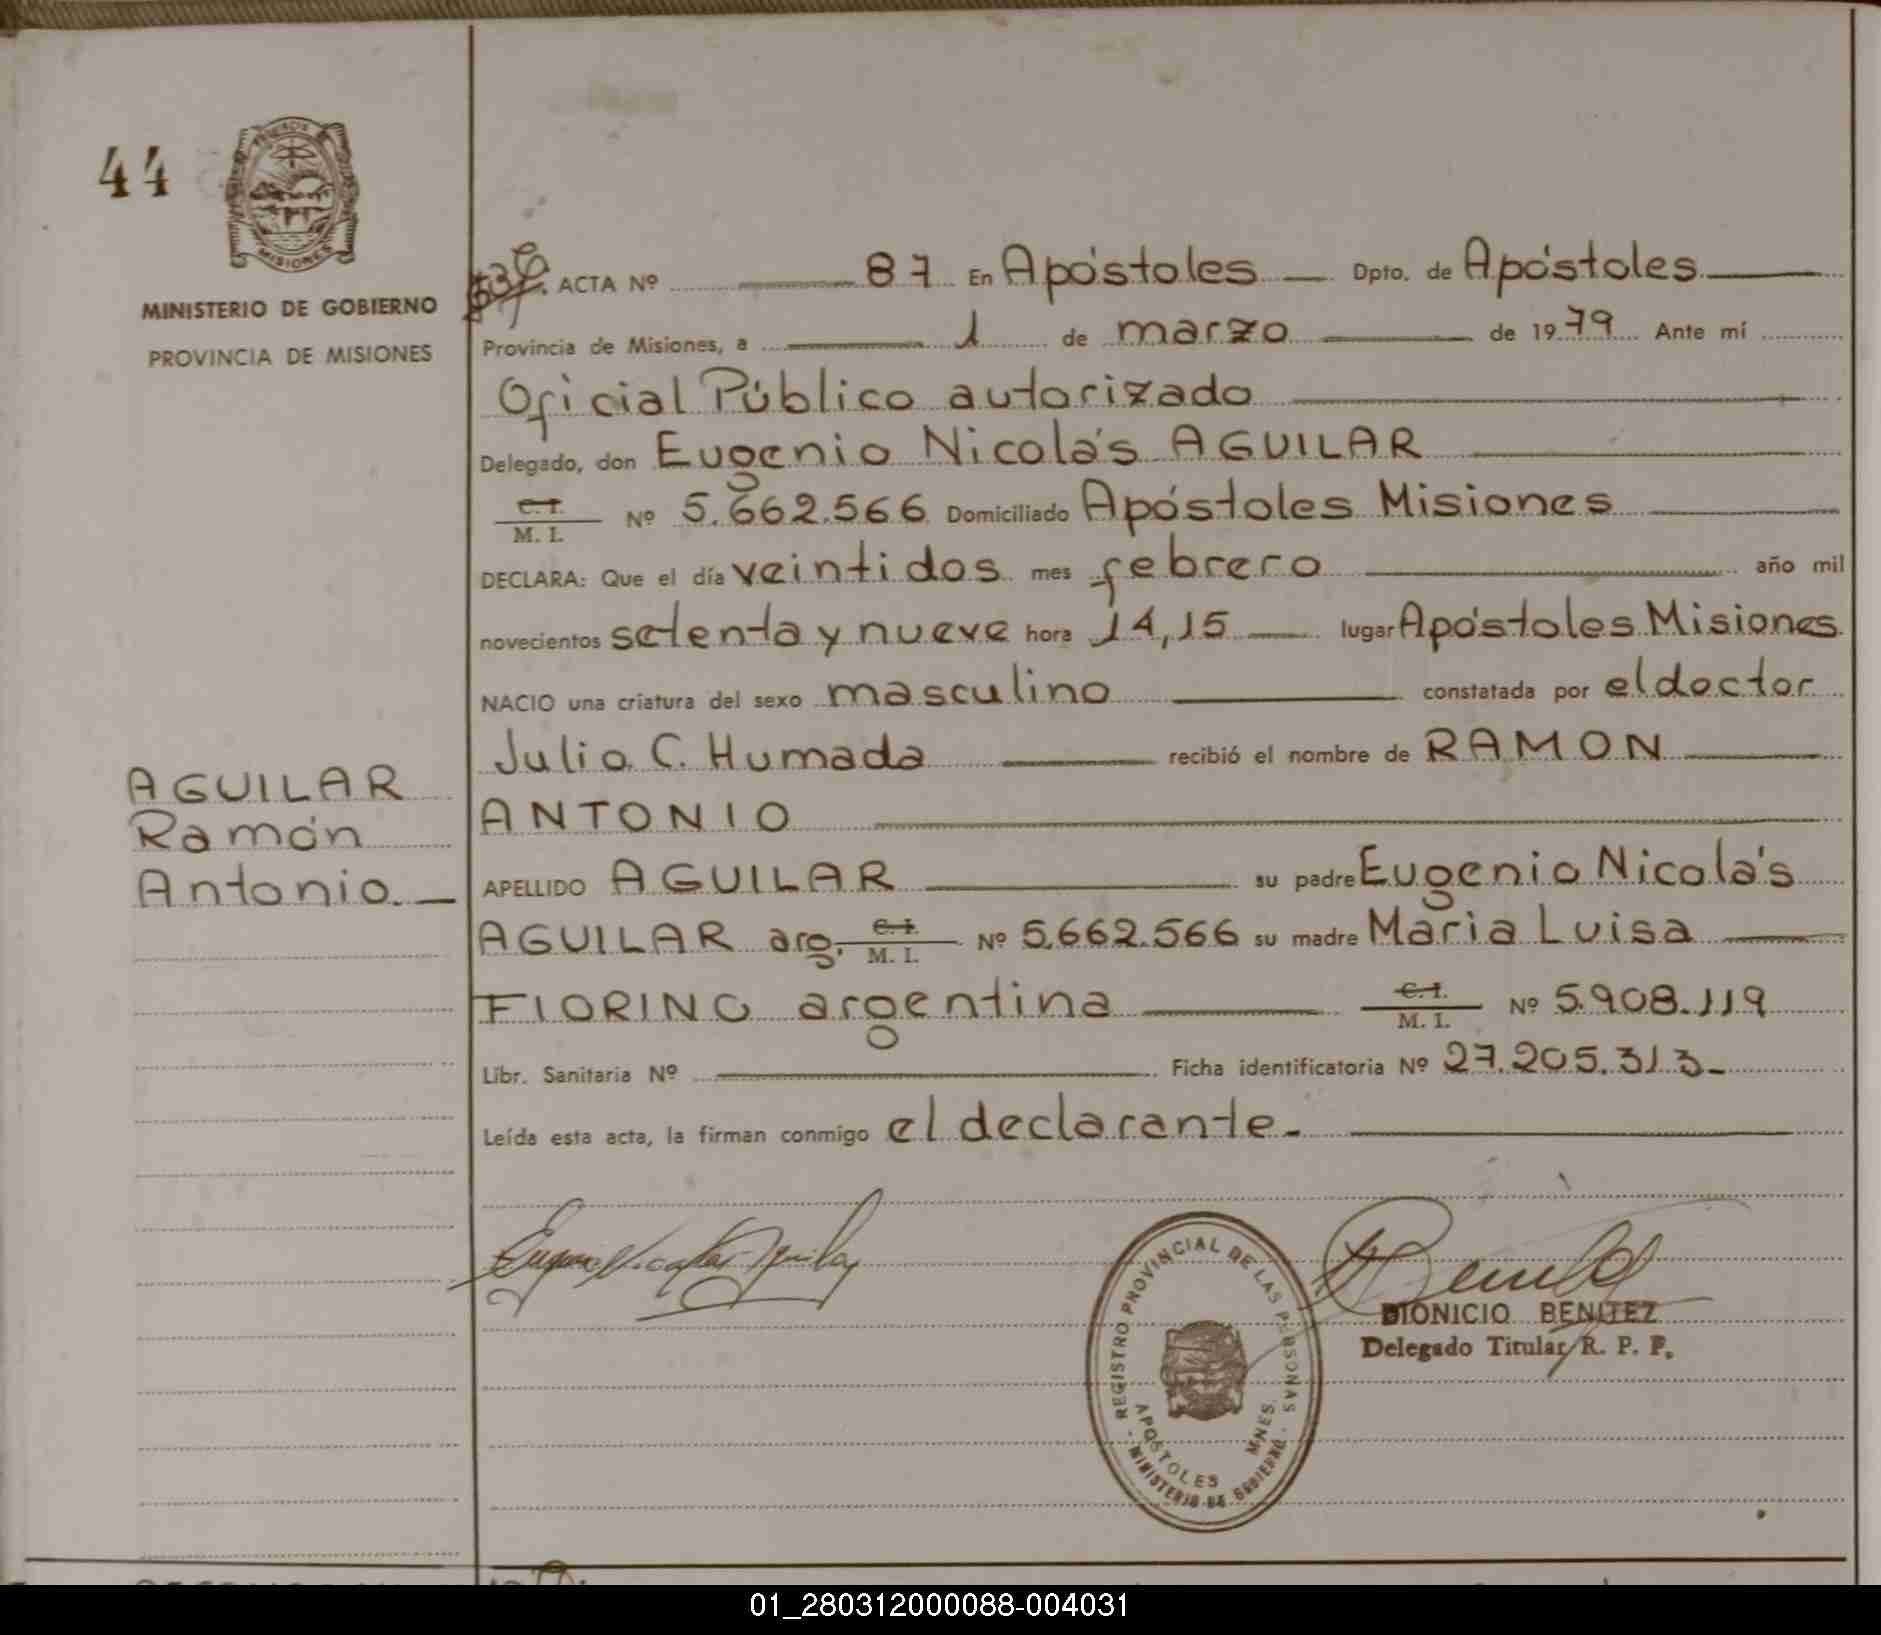 44
MISIONES
MINISTERIO DE GOBIERNO
PROVINCIA DE MISIONES
AGUILAR
Ramón
Antonio.
ACTA Nº 87 En Apóstoles Dpto. de Apóstoles
Provincia de Misiones, a 1 de marzo de 1979 Ante mí
Oficial Público autorizado
Delegado, don Eugenio Nicolás AGUILAR
C. I.
M. I. Nº 5.662.566 Domiciliado Apóstoles Misiones
DECLARA: Que el día veintidos mes febrero año mil
novecientos setenta y nueve hora 14,15 lugar Apóstoles Misiones
NACIO una criatura del sexo masculino constatada por el doctor
Julio C. Humada recibió el nombre de RAMON
ANTONIO
APELLIDO AGUILAR su padre Eugenio Nicolás
AGUILAR arg. C. I. M. I. Nº 5.662.566 su madre Maria Luisa
FIORINO argentina C. I. M. I. Nº 5.908.119
Libr. Sanitaria Nº Ficha identificatoria Nº 27.205.313-
Leída esta acta, la firman conmigo el declarante.-
REGISTRO PROVINCIAL DE LAS PERSONAS
APOSTOLES MNES.
- MINISTERIO DE GOBIERNO -
DIONICIO BENITEZ
Delegado Titular R. P. P.
01_280312000088-004031